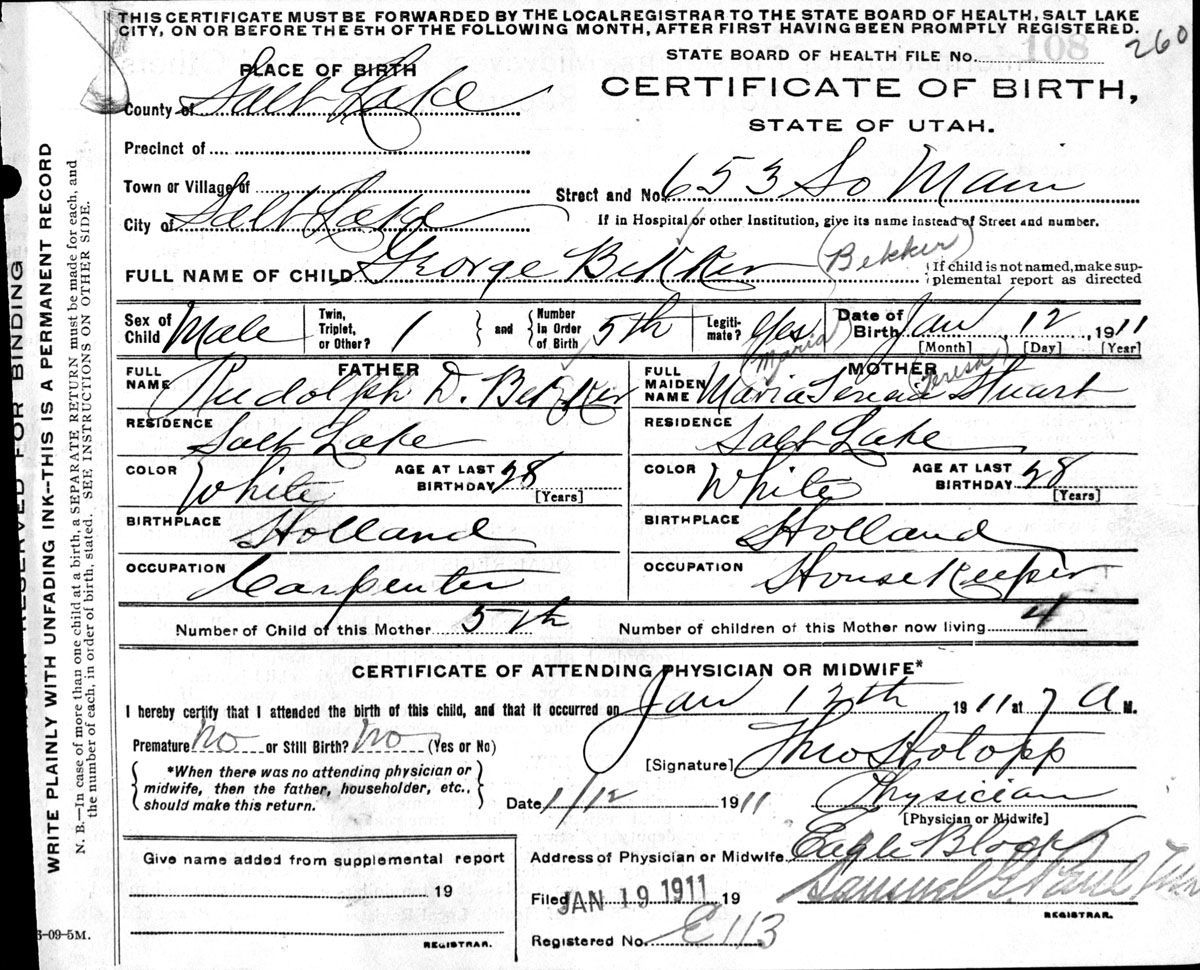 THIS CERTIFICATE MUST BE FORWARDED BY THE LOCAL REGISTRAR TO THE STATE BOARD OF HEALTH, SALT LAKE
CITY, ON OR BEFORE THE 5TH OF THE FOLLOWING MONTH, AFTER FIRST HAVING BEEN PROMPTLY REGISTERED.
260
STATE BOARD OF HEALTH FILE No. 108
CERTIFICATE OF BIRTH,
STATE OF UTAH.
PLACE OF BIRTH
County of Salt Lake
Precinct of
Town or Village of
Street and No. 653 So Main
City of Salt Lake
If in Hospital or other Institution, give its name instead of Street and number.
FULL NAME OF CHILD George Bekker (Bekker)
If child is not named, make sup-
plemental report as directed
Sex of Child Male
Twin, Triplet, or Other? 1
and
Number in Order of Birth 5th
Legiti-mate? Yes
Date of Birth Jan 12, 1911
[Month] [Day] [Year]
FATHER
FULL NAME Rudolph D. Bekker
RESIDENCE Salt Lake
COLOR White
AGE AT LAST BIRTHDAY 28
[Years]
BIRTHPLACE Holland
OCCUPATION Carpenter
MOTHER
(Maria) (Teresa)
FULL MAIDEN NAME Maria Stuart
RESIDENCE Salt Lake
COLOR White
AGE AT LAST BIRTHDAY 28
[Years]
BIRTHPLACE Holland
OCCUPATION House Keeper
Number of Child of this Mother 5th
Number of children of this Mother now living 4
CERTIFICATE OF ATTENDING PHYSICIAN OR MIDWIFE*
I hereby certify that I attended the birth of this child, and that it occurred on Jan 12th 1911 at 7 A M.
Premature No or Still Birth? No (Yes or No)
*When there was no attending physician or
midwife, then the father, householder, etc.,
should make this return.
[Signature] Theo Holopp
Date 1/12 1911
Physician
[Physician or Midwife]
Give name added from supplemental report
19
REGISTRAR.
Address of Physician or Midwife Eagle Block
Filed JAN 19 1911 19
Samuel G. Paul
REGISTRAR.
Registered No. E113
3-09-5M.
RESERVED FOR BINDING
WRITE PLAINLY WITH UNFADING INK—THIS IS A PERMANENT RECORD
N. B.—In case of more than one child at a birth, a SEPARATE RETURN must be made for each, and
the number of each, in order of birth, stated. SEE INSTRUCTIONS ON OTHER SIDE.